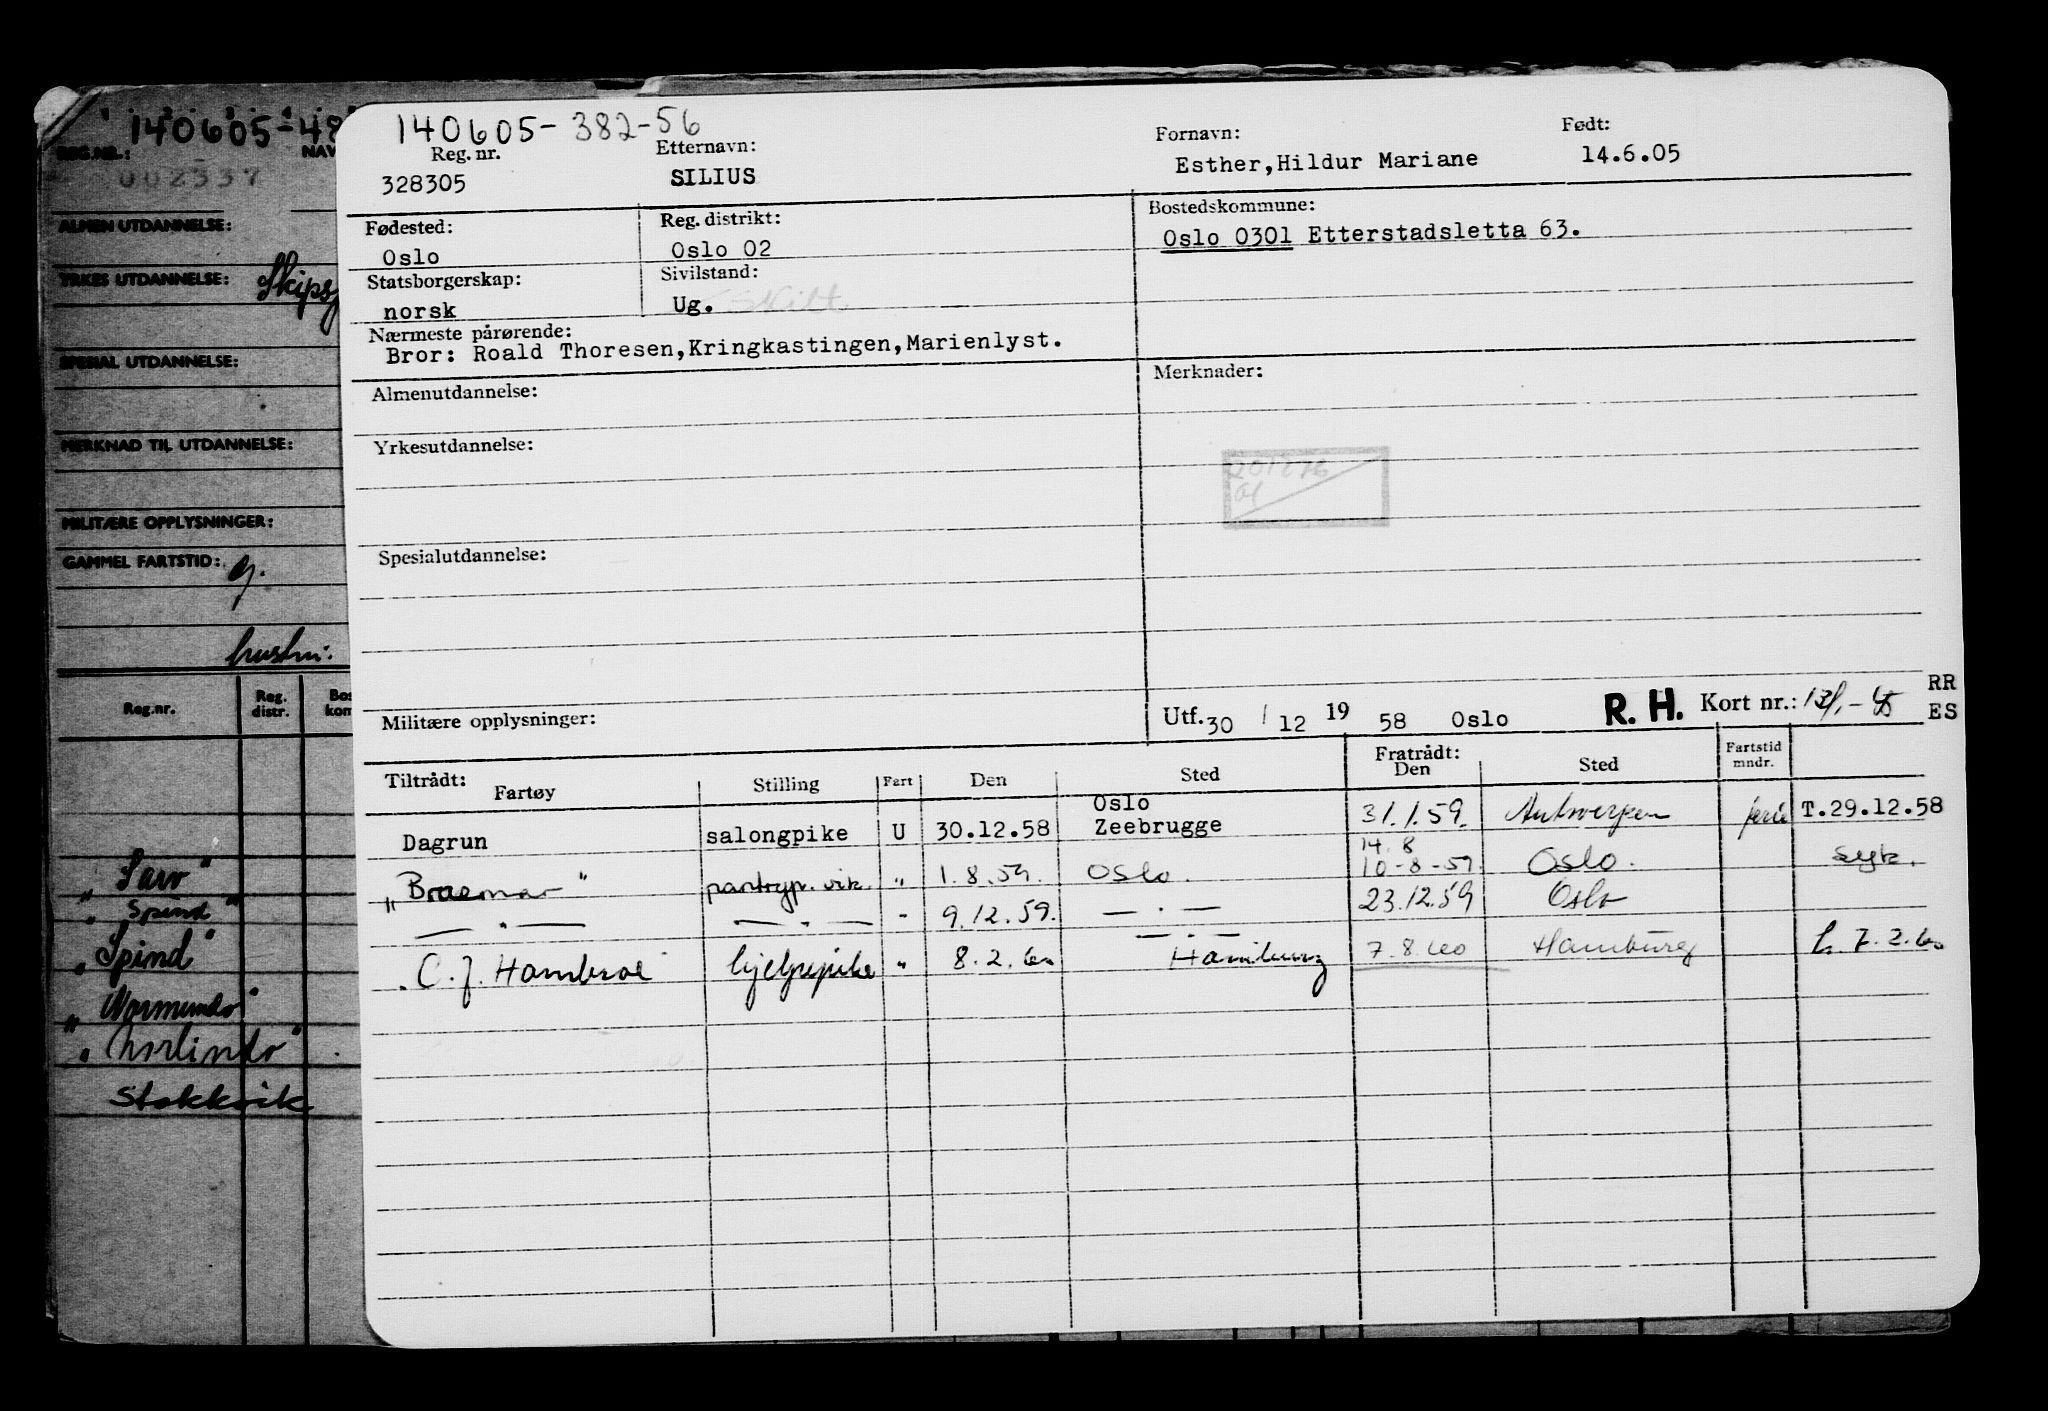 140605-48
REG.NR.: NAV
002337
ALMEN UTDANNELSE:
YRKES UTDANNELSE: Skips
SPESIAL UTDANNELSE:
MERKNAD TIL UTDANNELSE:
MILITÆRE OPPLYSNINGER:
GAMMEL FARTSTID:
Reg.nr. Reg. distr. Bos kom
"Spind"
"Spind"
"Norlindo"
Stokkvik
140605-382-56
Reg. nr. Etternavn: Fornavn: Født:
328305 SILIUS Esther,Hildur Mariane 14.6.05
Fødested: Reg. distrikt: Bostedskommune:
Oslo Oslo 02 Oslo 0301 Etterstadsletta 63.
Statsborgerskap: Sivilstand:
norsk Ug. skilt
Nærmeste pårørende:
Bror: Roald Thoresen,Kringkastingen,Marienlyst.
Almenutdannelse: Merknader:
Yrkesutdannelse:
201276
Spesialutdannelse:
Militære opplysninger: Utf. 30 / 12 19 58 Oslo R. H. Kort nr.: RR
ES
Tiltrådt: Fartøy Stilling Fart Den Sted Fratrådt: Den Sted Fartstid mndr.
Dagrun salongpike U 30.12.58 Oslo Zeebrugge 31.1.59. Antwerpen ferie T.29.12.58
14.8
"Braemar" pantryp. vik. " 1.8.59. Oslo. 10-8-59 Oslo. syk.
— " — — . — - 9.12.59. — . — 23.12.59 Oslo
— . —
C. J. Hambro hjelpepike " 8.2.60 Hamburg 7.8.60 Hamburg h. 7.2.60